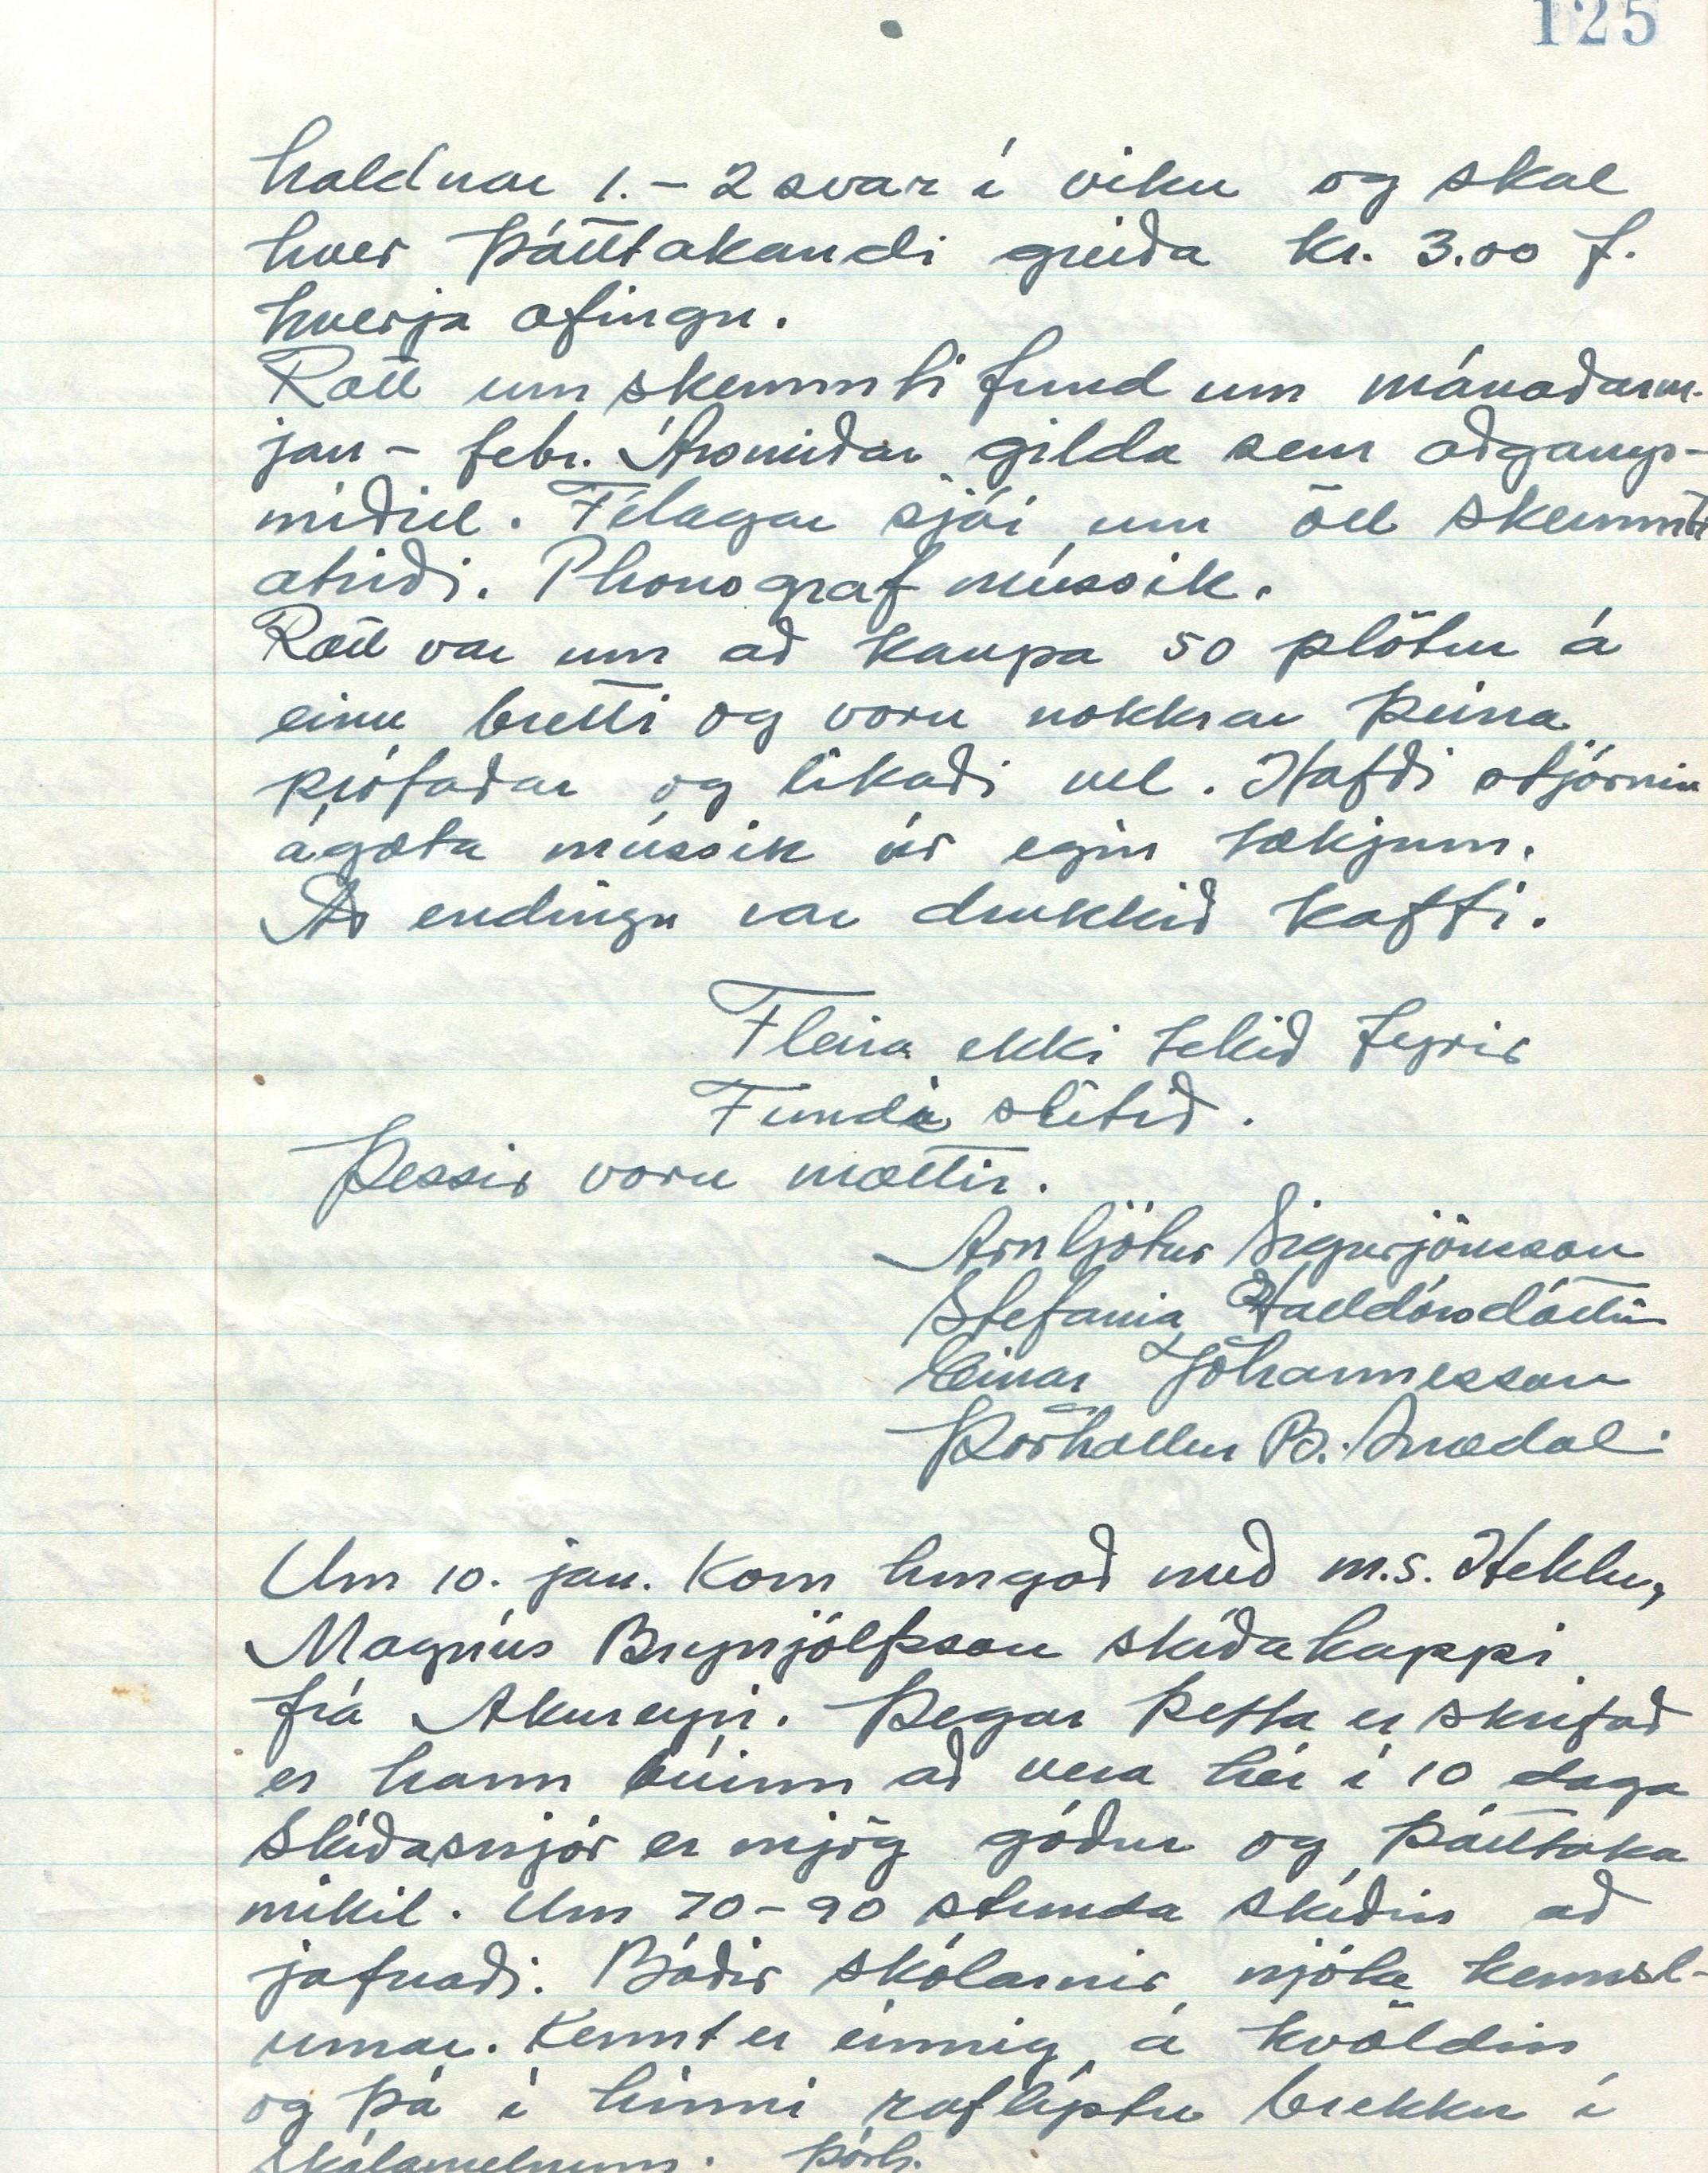 125
haldnar 1.-2svar í viku og skal
hver þátttakandi greiða kr. 3.00 f.
hverja æfingu.
Rætt um skemmtifund um mánaðarm.
jan - febr. Ársmiðar gilda sem aðgangs-
miðill. Félagar sjái um öll skemmti
atriði. Phonograf mússik.
Rætt var um að kaupa 50 plötur á
einu bretti og voru nokkrar þeirra
prófaðar og líkaði vel. Hafði stjórnin
ágæta mússik úr egin tækjum.
Að endingu var drukkið kaffi.
Fleira ekki tekið fyrir
Fundi slitið.
Þessir voru mættir.
Arnljótur Sigurjónsson
Stefania Halldórsdóttir
Einar J Jóhannesson
Þórhallur B. Snædal.
Um 10. jan. kom hingað með m.s. Heklu,
Magnús Brynjólfsson skíðakappi
frá Akureyri. Þegar þetta er skrifað
er hann búinn að vera hér í 10 daga
Skíðasnjór er mjög góður og þátttaka
mikil. Um 70-90 stunda skíðin að
jafnaði. Báðir skólarnir njóta kennsl-
unnar. Kennt er einnig á kvöldin
og þá í hinni raflýstu brekku í
Skálamelnum. Þórh.